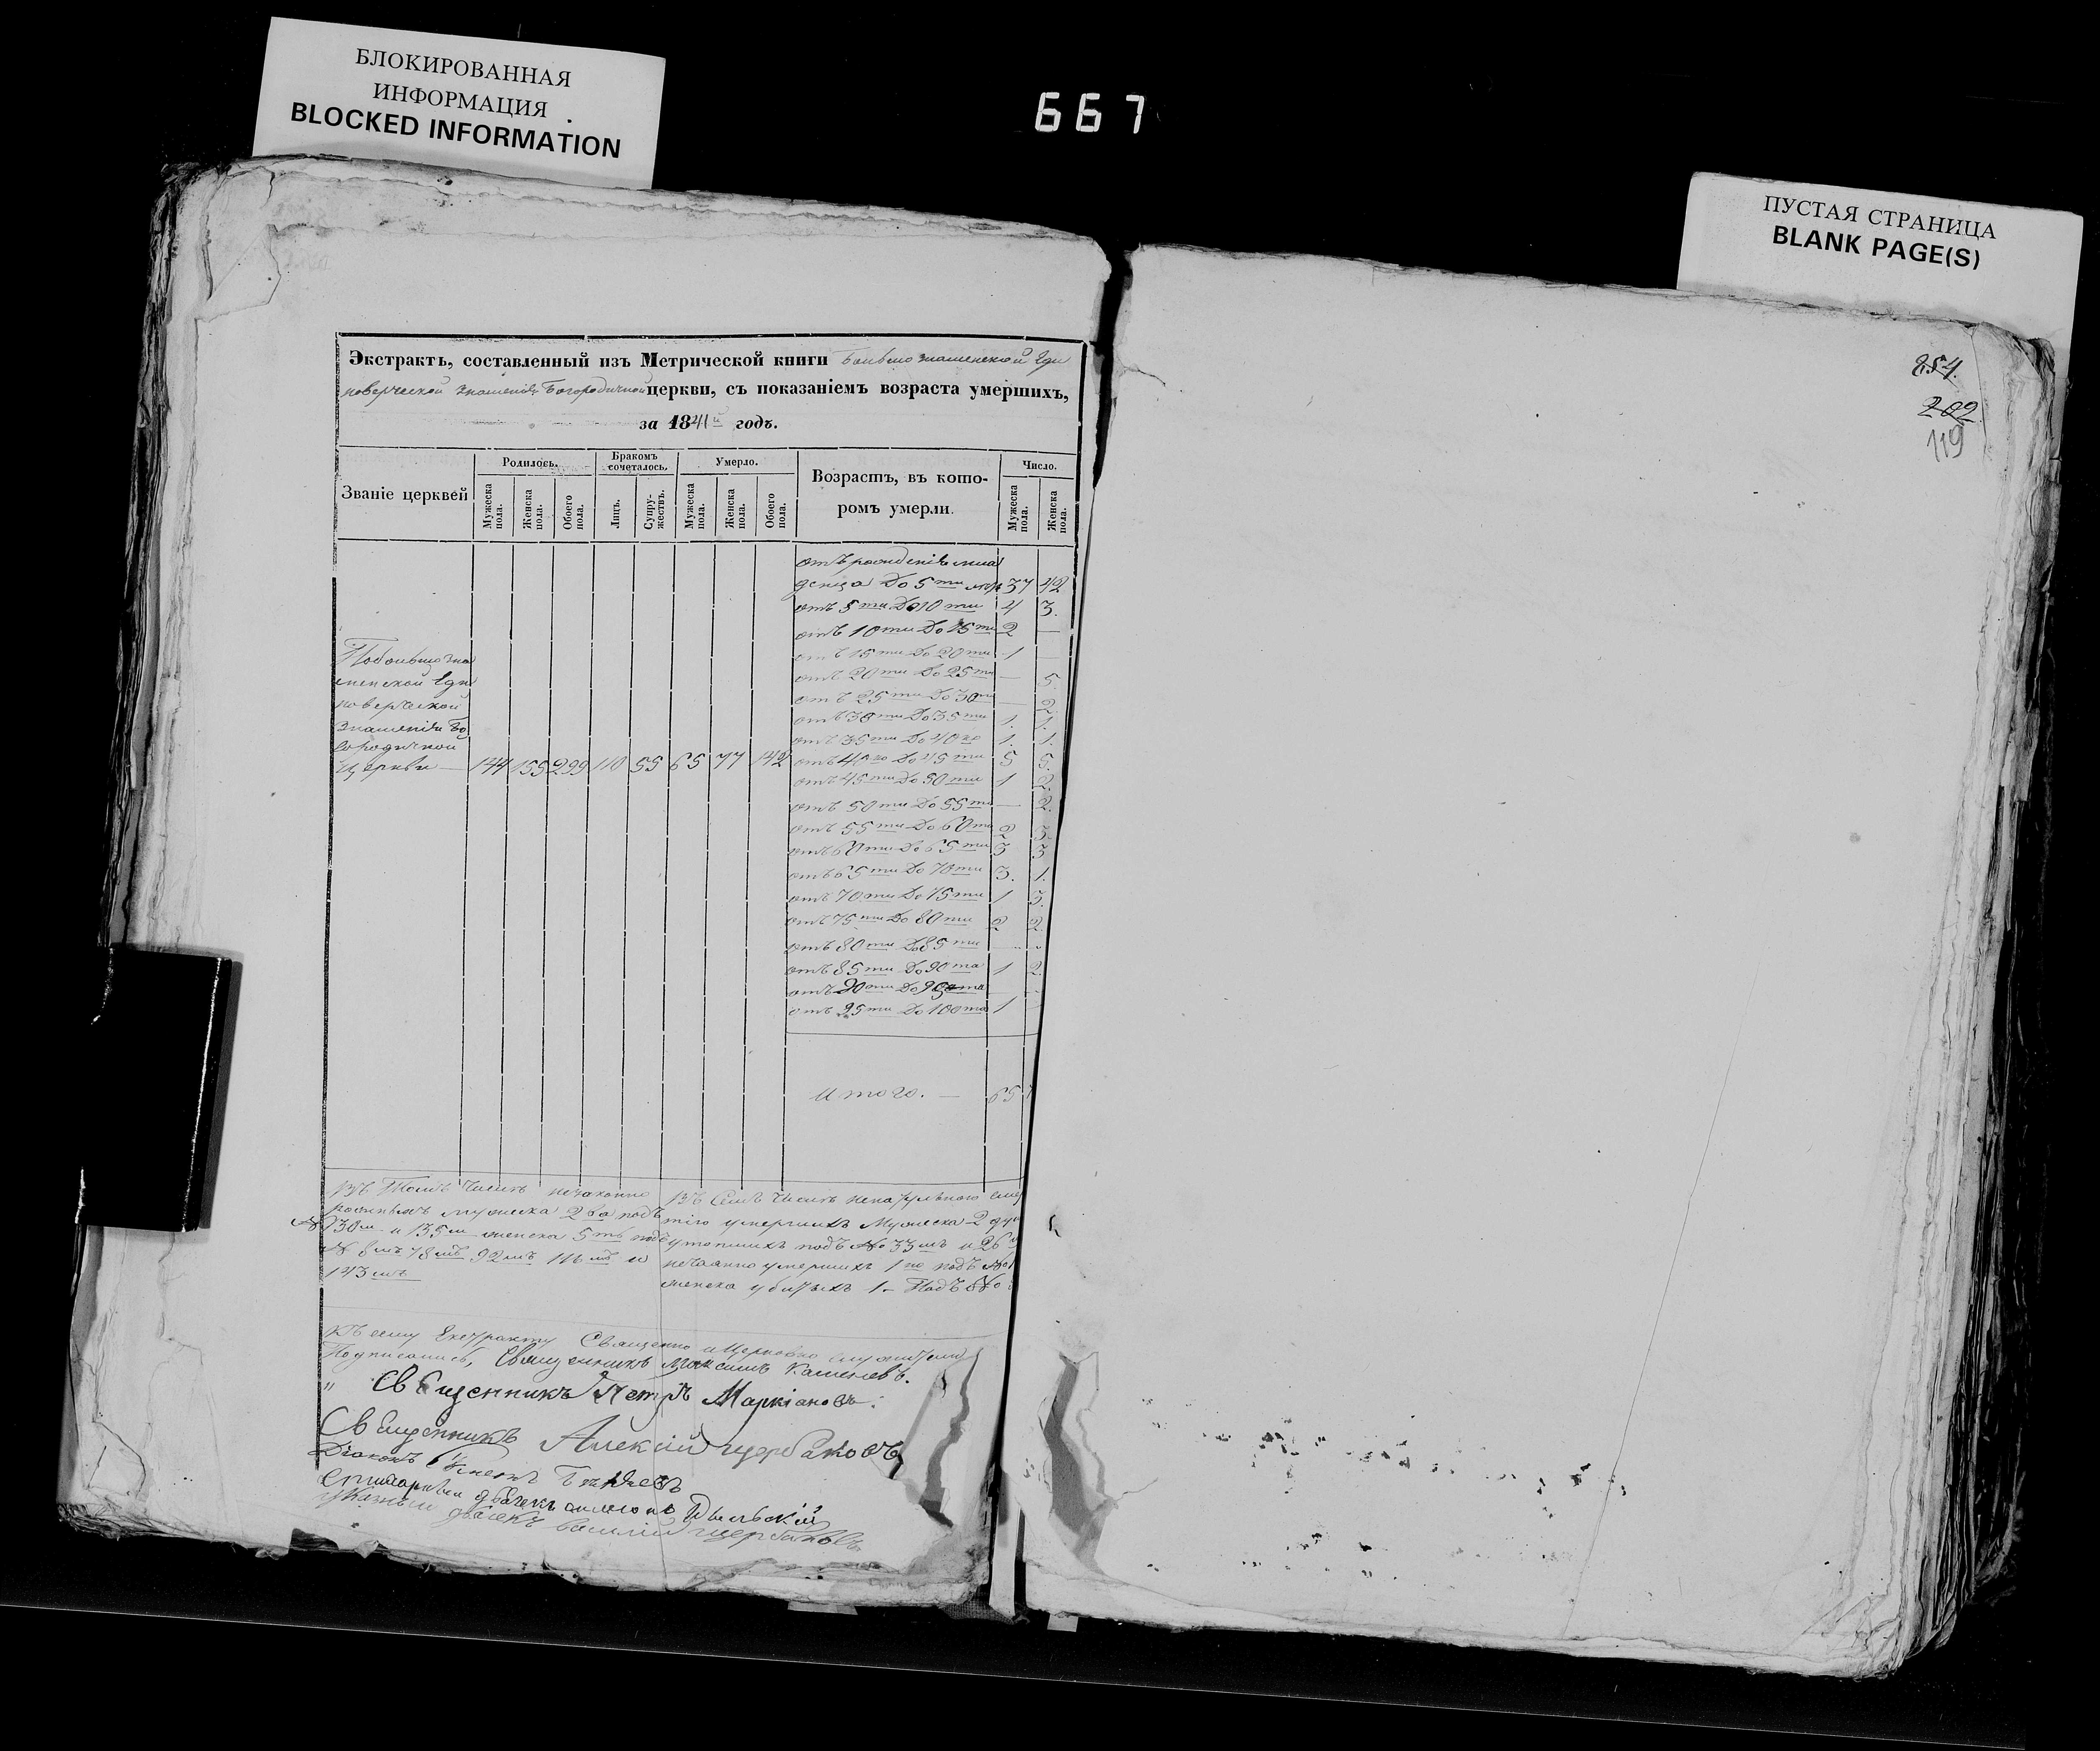 БЛОКИРОВАННАЯ
ИНФОРМАЦИЯ
BLOCKED INFORMATION
667
ПУСТАЯ СТРАНИЦА
BLANK PAGE(S)
254.
202
119
Экстрактъ, составленный изъ Метрической книги Едино
верческой Знаменія Богородичной церкви, съ показаніемъ возраста умершихъ,
за 1841й годъ.
Званіе церквей
Родилось.
Бракомъ сочеталось.
Умерло.
Возрастъ, въ которомъ умерли.
Число.
Мужеска пола.
Женска пола.
Обоего пола.
Лицъ.
Супружествъ.
Мужеска пола.
Женска пола.
Обоего пола.
Мужеска пола.
Женска пола.
отъ рожденія мла
денца до 5ти 37 42
отъ 5ти до 10ти 4 3.
отъ 10ти до 15ти 2 —
отъ 15ти до 20ти 1 —
отъ 20ти до 25ти — 5.
отъ 25ти до 30ти — 2.
отъ 30ти до 35ти 1. 1.
отъ 35ти до 40ко 1. 1.
церкви — 144 155 299 110 55 65 77 142 отъ 40ко до 45ти 5 5.
отъ 45ти до 50ти 1 2.
отъ 50ти до 55ти — 2.
отъ 55ти до 60ти 2 3.
отъ 60ти до 65ти 3 3
отъ 65ти до 70ти 3. 1.
отъ 70ти до 75ти 1 3.
отъ 75ти до 80ти 2 2
отъ 80ти до 85ти —
отъ 85ти до 90та 1 2.
отъ 90ти до
отъ 95ти до 100та 1
Итого. — 65
Въ Томъ числѣ незаконно
рожденныхъ мужеска 2ва подъ
№ 130м и 135м женска 5ть подъ
№ 8мъ 78мъ 92мъ 116мъ и
143мъ
Въ семъ числѣ
умершихъ Мужеска 2
утопшихъ подъ № 33мъ и 26
нечаянно умершихъ 1 подъ №
женска убитыхъ 1 — Подъ №
Къ сему Екстракту Священно и Церковно служители
Подписались, Священникъ Максимъ Каменевъ.
Священникъ Петръ Маркіановъ.
Священникъ Алексій Щербаковъ
Діаконъ
Симеонъ
Указный дьячекъ Василій Щербаковъ